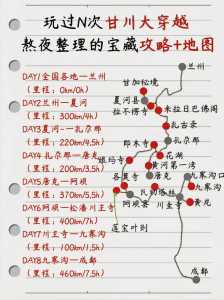 玩过N次甘川大穿越
熬夜整理的宝藏攻略+地图
DAY1全国各地—兰州
(里程：0km/0h)
DAY2兰州—夏河
(里程：300km/4h)
DAY3夏河—扎尕那
(里程：220km/4.5h)
DAY4 扎尕那—唐克
(里程：200km/3.5h)
DAY5唐克—阿坝
(里程：370km/5.5h)
DAY6阿坝—松潘川主寺
(里程：400km/7h)
DAY7川主寺—九寨沟
(里程：100km/1.5h)
DAY8九寨沟—成都
(里程：460km/7.5h)
兰州
甘加秘境
夏河县
拉不楞寺
米拉日巴佛阁
扎古录
扎尕那
郎木寺
花湖
黄河第一湾
唐克
九寨沟口
九寨沟
瓦切塔林
阿坝
川主寺
黄龙
莲宝叶则
成都